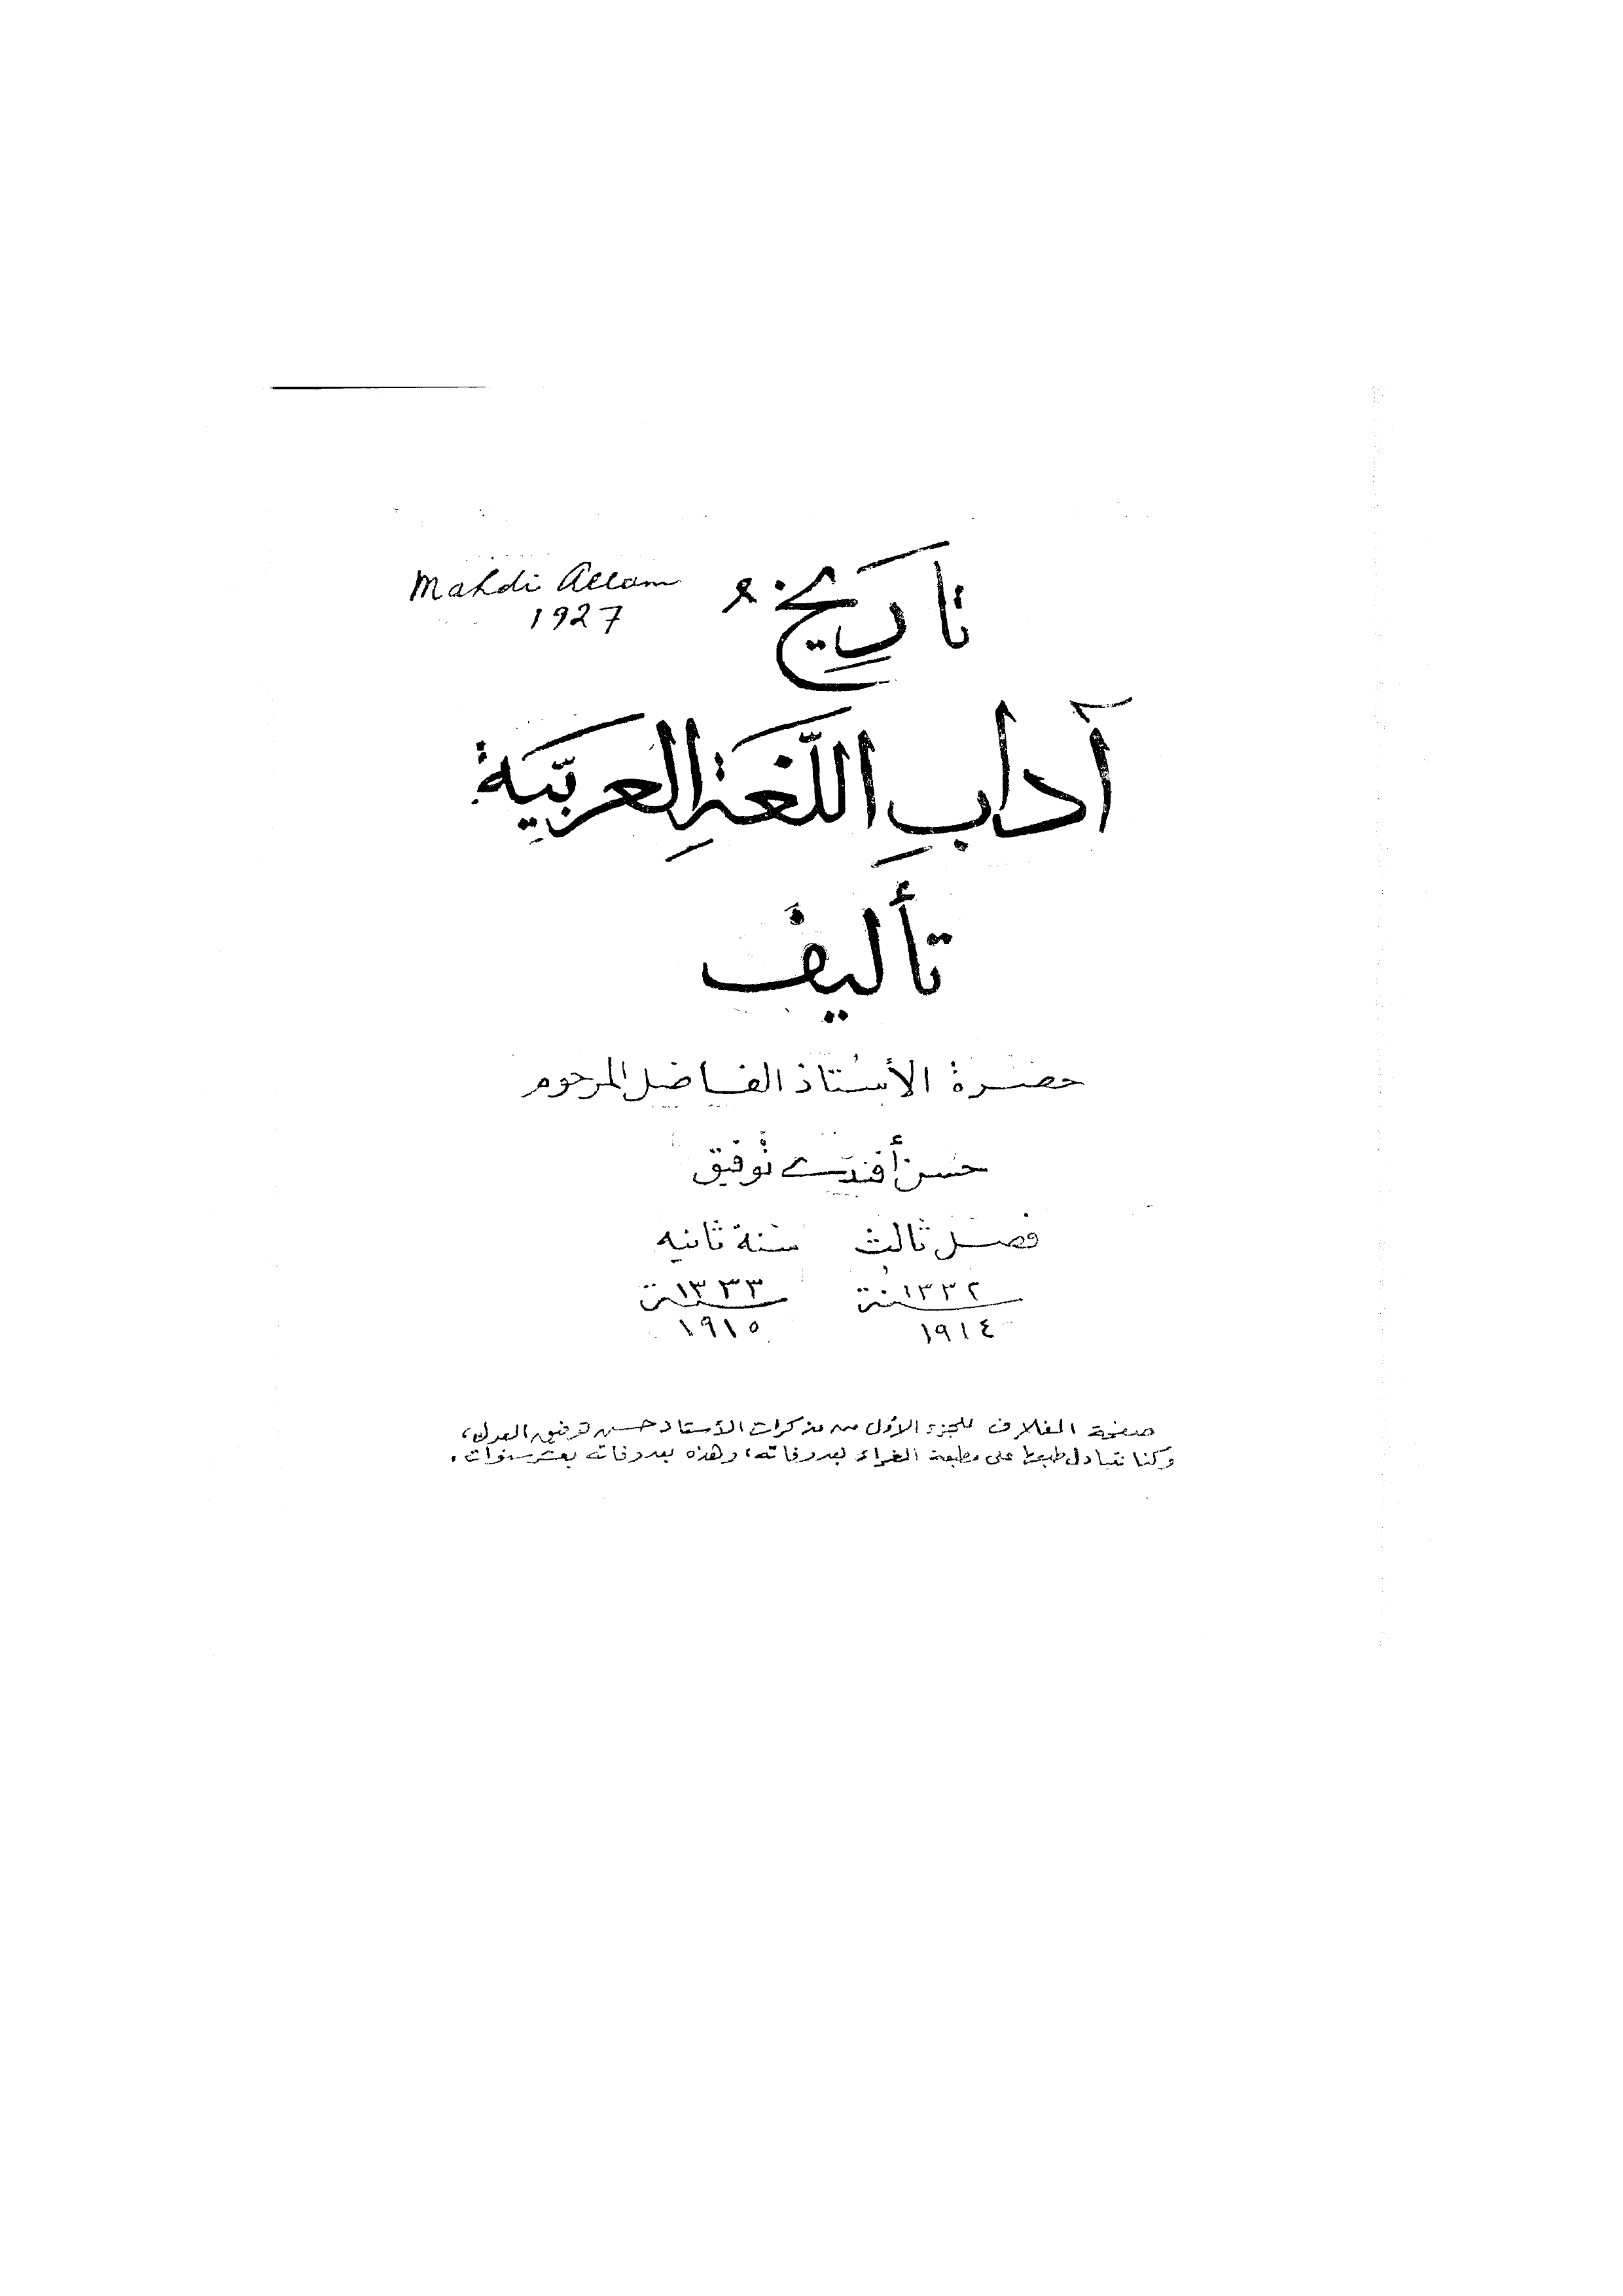 تاريخ
Mahdi Allam
1927
آدابِ اللّغةِ العربيّة
تأليف
حضرة الأستاذ الفاضل المرحوم
حسن أفندى توفيق
فصل ثالث سنة ثانيه
سنة ١٣٣٢ سنة ١٣٣٣
١٩١٤ ١٩١٥
صفحة الغلاف للجزء الأول من مذكرات الأستاذ حسن توفيق العدل،
وكنا نتبادل طبعها على مطبعة الغراء بعد وفاته، وهذه بعد وفاته بعشر سنوات.